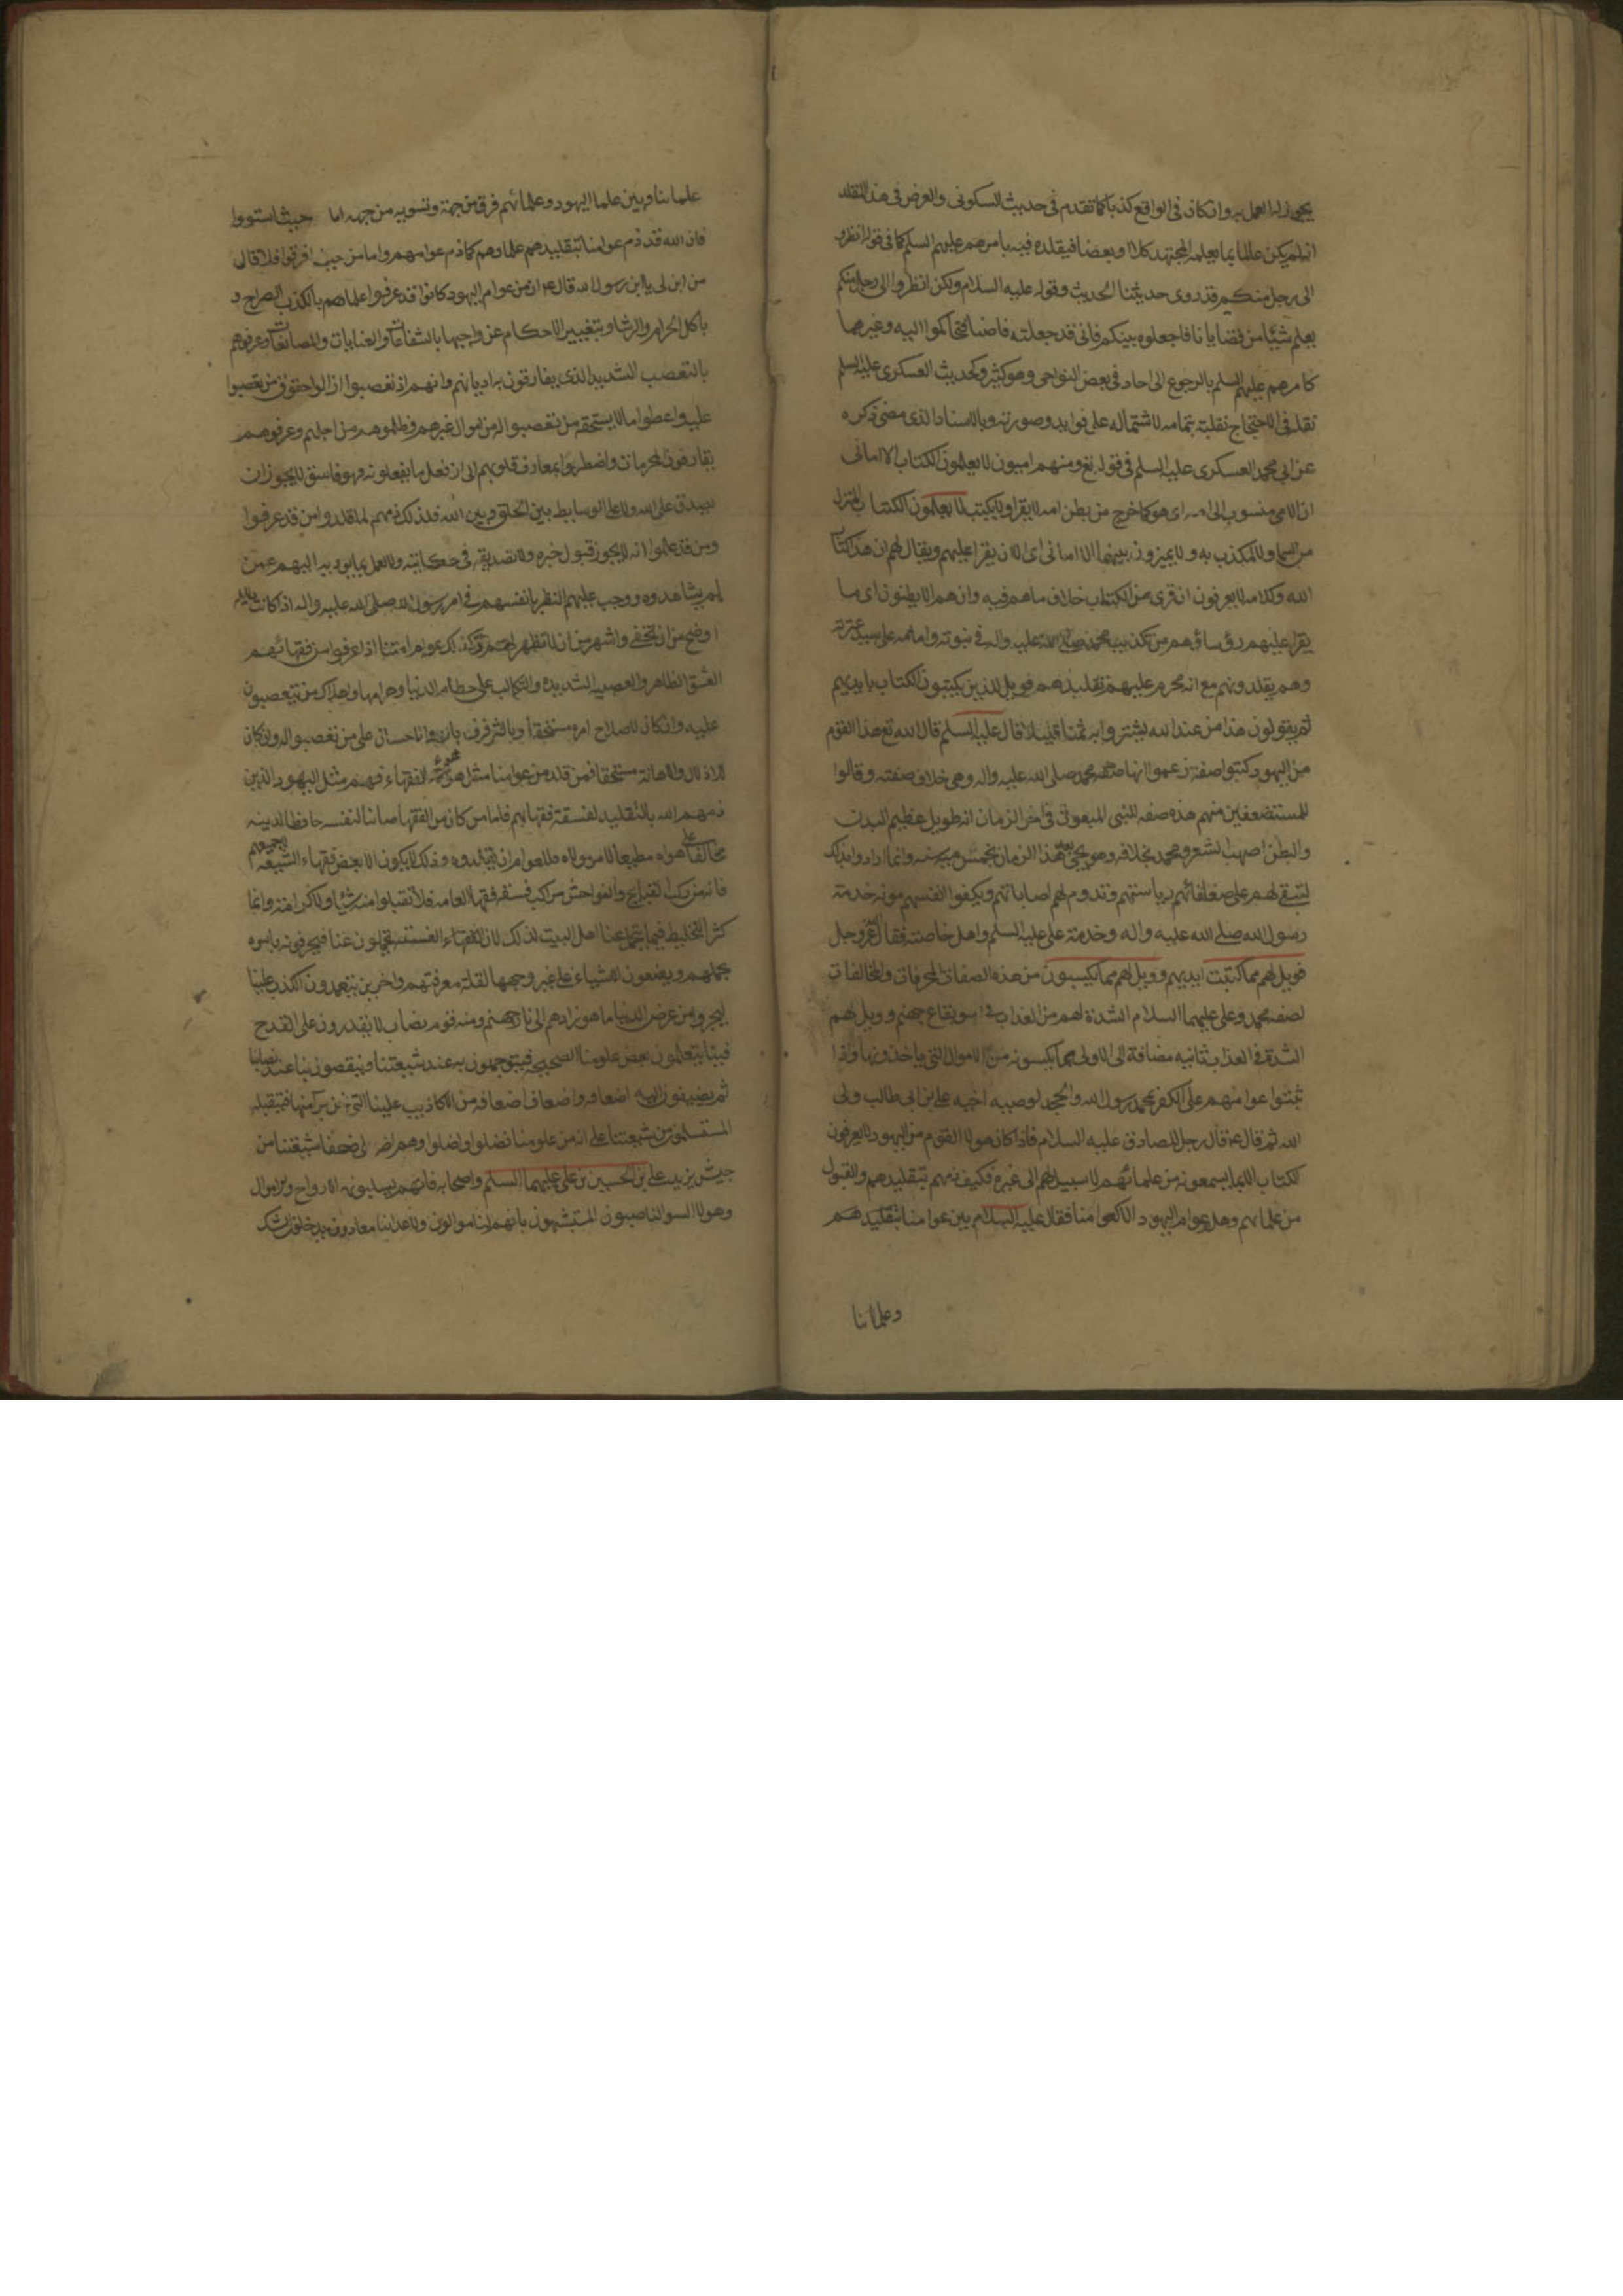 يجوز له العمل به وان كان في الواقع كذبا كما تقدم في حديث السكوني والغرض في هذا التقليد
ان لم يكن عالما بما يعلمه المجتهد كلا او بعضا فيقلده فيه بامرهم عليهم السلم كما في قوله انظروا
الى رجل منكم قد روى حديثنا الحديث وقوله عليه السلام ولكن انظروا الى رجل منكم
يعلم شيئا من قضايانا فاجعلوه بينكم فانى قد جعلته قاضيا فتحاكموا اليه وغيرهما
كامرهم عليهم السلم بالرجوع الى احاد في بعض النواحي وهو كثير وكحديث العسكرى عليه السلم
نقله في الاحتجاج نقلته بتمامه لاشتماله على فوايد وصورته وبالاسناد الذى مضى ذكره
عن ابى محمد العسكرى عليه السلم في قوله تع ومنهم اميون لا يعلمون الكتاب الا امانى
ان الامى منسوب الى امه اى هو كما خرج من بطن امه لا يقرا ولا يكتب لا يعلمون الكتاب المنزل
من السما ولا المكذب به ولا يميزون بينهما الا امانى اى الا ان يقرا عليهم ويقال لهم ان هذا كتاب
الله وكلامه لا يعرفون ان قرى من الكتاب خلاف ما هم فيه وان هم الا يظنون اى ما
يقرا عليهم رؤساؤهم من تكذيب محمد صلى الله عليه واله في نبوته وامامة على سيد عترته
وهم يقلدونهم مع انه محرم عليهم تقليدهم فويل للذين يكتبون الكتاب بايديهم
ثم يقولون هذا من عند الله ليشتروا به ثمنا قليلا قال عليه السلم قال الله تع هذا القوم
من اليهود كتبوا صفة زعموا انها صفة محمد صلى الله عليه واله وهى خلاف صفته وقالوا
للمستضعفين منهم هذه صفة النبى المبعوث في اخر الزمان انه طويل عظيم البدن
والبطن اصهب الشعر ومحمد بخلافه وهو يجئ بعد هذا الزمان بخمس مئة سنة وانما ارادوا بذلك
لتبقى لهم على ضعفائهم رياستهم وتدوم لهم اصاباتهم ويكفوا انفسهم مونة خدمة
رسول الله صلى الله عليه واله وخدمة على عليه السلم واهل خاصته فقال الله عز وجل
فويل لهم مما كتبت ايديهم وويل لهم مما يكسبون من هذه الصفات المحرفات والمخالفات
لصفة محمد وعلى عليهما السلام الشدة لهم من العذاب في اسو بقاع جهنم وويل لهم
الشدة في العذاب ثانيه مضافة الى الاولى مما يكسبونه من الاموال التى ياخذونها اذا
ثبتوا عوامهم على الكفر بمحمد رسول الله والجحد لوصيه اخيه على بن ابى طالب ولى
الله ثم قال ع قال رجل للصادق عليه السلام فاذا كان هولا القوم من اليهود لا يعرفون
الكتاب الا بما يسمعونه من علمائهم لا سبيل لهم الى غيره فكيف ذمهم بتقليدهم والقبول
من علمائهم وهل عوام اليهود الا كعوامنا فقال عليه السلام بين عوامنا بتقليدهم
وعلمائنا
علمائنا وبين علما اليهود وعلمائهم فرق من جهة وتسوية من جهة اما حيث استووا
فان الله قد ذم عوامنا بتقليدهم علماءهم كما ذم عوامهم واما من حيث افرقوا فلا قال
بين لى يا ابن رسول الله قال ع ان عوام اليهود كانوا قد عرفوا علماهم بالكذب الصراح و
باكل الحرام والرشا وبتغيير الاحكام عن واجبها بالشفاعات والعنايات والمصانعات وعرفوهم
بالتعصب الشديد الذى يفارقون به اديانهم وانهم اذا تعصبوا ازالوا حقوق من تعصبوا
عليه واعطوا ما لا يستحقه من تعصبوا له من اموال غيرهم وظلموهم من اجلهم وعرفوهم
يقارفون المحرمات واضطروا بمعارف قلوبهم الى ان من فعل ما يفعلونه فهو فاسق لا يجوز ان
يصدق على الله ولا على الوسايط بين الخلق وبين الله فلذلك ذمهم لما قلدوا من قد عرفوا
ومن قد علموا انه لا يجوز قبول خبره ولا تصديقه في حكايته ولا العمل بما يوديه اليهم عمن
لم يشاهدوه ووجب عليهم النظر بانفسهم في امر رسول الله صلى الله عليه واله اذ كانت دلايله
اوضح من ان تخفى واشهر من ان لا تظهر لهم وكذلك عوام امتنا اذا عرفوا من فقهائهم
الفسق الظاهر والعصبية الشديدة والتكالب على حطام الدنيا وحرامها واهلاك من يتعصبون
عليه وان كان لاصلاح امره مستحقا وبالترفرف بالبر والاحسان على من تعصبوا له وان كان
للاذلال والاهانة مستحقا فمن قلد من عوامنا مثل هؤلاء الفقهاء فهم مثل اليهود الذين
ذمهم الله بالتقليد لفسقة فقهائهم فاما من كان من الفقها صائنا لنفسه حافظا لدينه
مخالفا على هواه مطيعا لامر مولاه فللعوام ان يقلدوه وذلك لا يكون الا بعض فقهاء الشيعة لا جميعهم
فانه من ركب القبايح والفواحش مراكب فسقة فقها العامه فلا تقبلوا منه شيئا ولا كرامة وانما
كثر التخليط فيما يتحمل عنا اهل البيت لذلك لان الفقهاء الفسقة يتحملون عنا فيحرفونه باسره
بجهلهم ويضعون الاشياء على غير وجهها لقلة معرفتهم واخرين يتعمدون الكذب علينا
ليجروا من عرض الدنيا ما هو زادهم الى نار جهنم ومنهم قوم نصاب لا يقدرون على القدح
فينا يتعلمون بعض علومنا الصحيحة فيتوجهون به عند شيعتنا وينتقصون بنا عند نصابنا
ثم يضيفون اليه اضعافه واضعاف اضعافه من الاكاذيب علينا التى نحن برآ منها فيتقبله
المستسلمون من شيعتنا على انه من علومنا فضلوا واضلوا وهم اضر على ضعفا شيعتنا من
جيش يزيد على الحسين بن على عليهما السلم واصحابه فانهم يسلبونهم الارواح والاموال
وهولا السو الناصبون المتشبهون بانهم لنا موالون ولاعدائنا معادون يدخلون الشك